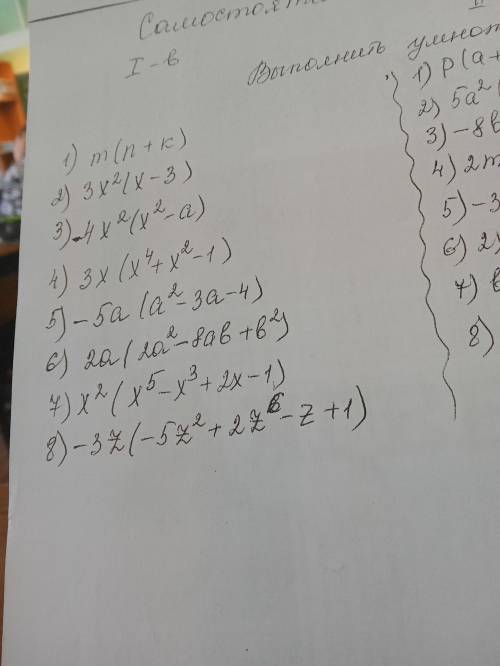 I-в
Выполнить
1) m(n+к)
2) 3x²(x-3)
3) -4x²(x²-a)
4) 3x(x⁴+x²-1)
5) -5a(a²-3a-4)
6) 2a(2a²-8ab+b²)
7) x²(x⁵-x³+2x-1)
8) -3z(-5z²+2z⁶-z+1)
1) p(a+
2) 5a²(
3) -8b
4) 2m
5) -3
6) 2
7) b
8)